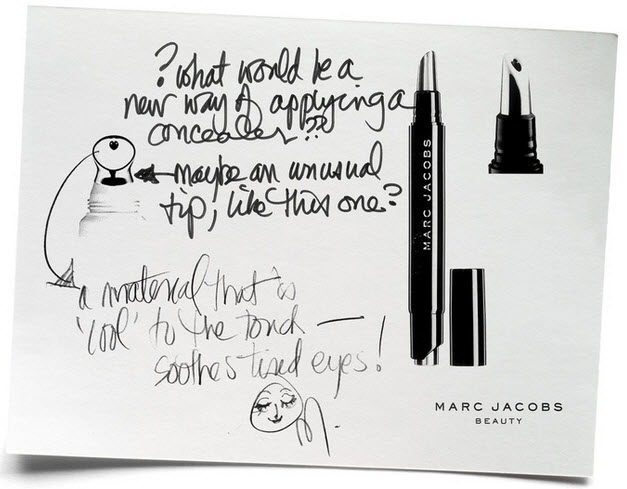 ? what would be a
new way of applying a
concealer??
maybe an unusual
tip, like this one?
a material that is
'cool' to the touch —
soothes tired eyes!
M.
MARC JACOBS
MARC JACOBS
BEAUTY